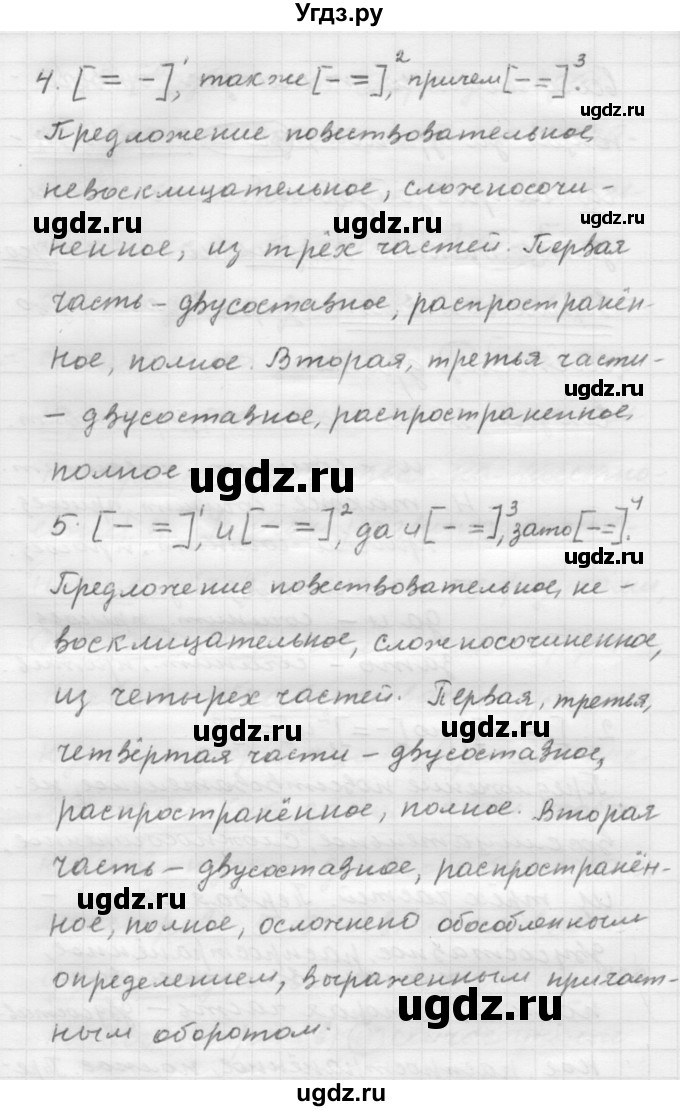 Угдз.ру
4. [= -]¹, также [- =]², причем [- =]³.
Предложение повествовательное,
невосклицательное, сложносочи-
ugdz.ru ugdz.ru
ненное, из трёх частей. Первая
часть – двусоставное, распространён-
ное, полное. Вторая, третья части-
ugdz.ru
– двусоставное, распространенное,
полное
ugdz.ru
5. [- =]¹, и [- =]², да и [- =]³, зато [- =]⁴.
Предложение повествовательное, не-
восклицательное, сложносочиненное,
ugdz.ru
из четырех частей. Первая, третья,
ugdz.ru
четвёртая части – двусоставное,
распространённое, полное. Вторая
часть – двусоставное, распространён-
ugdz.ru
ное, полное, осложнено обособленным
определением, выраженным причаст-
ugdz.ru
ным оборотом.
ugdz.ru